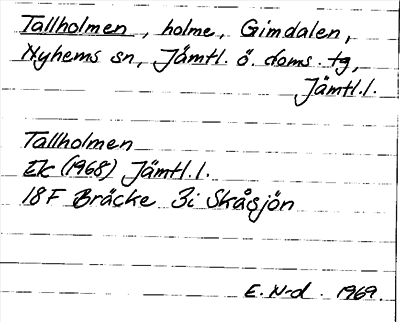 Tallholmen, holme, Gimdalen,
Nyhems sn, Jämtl. ö. doms. tg,
Jämtl.l.
Tallholmen
Ek (1968) Jämtl.l.
18F Bräcke 3i Skåsjön
E. N-d. 1969.